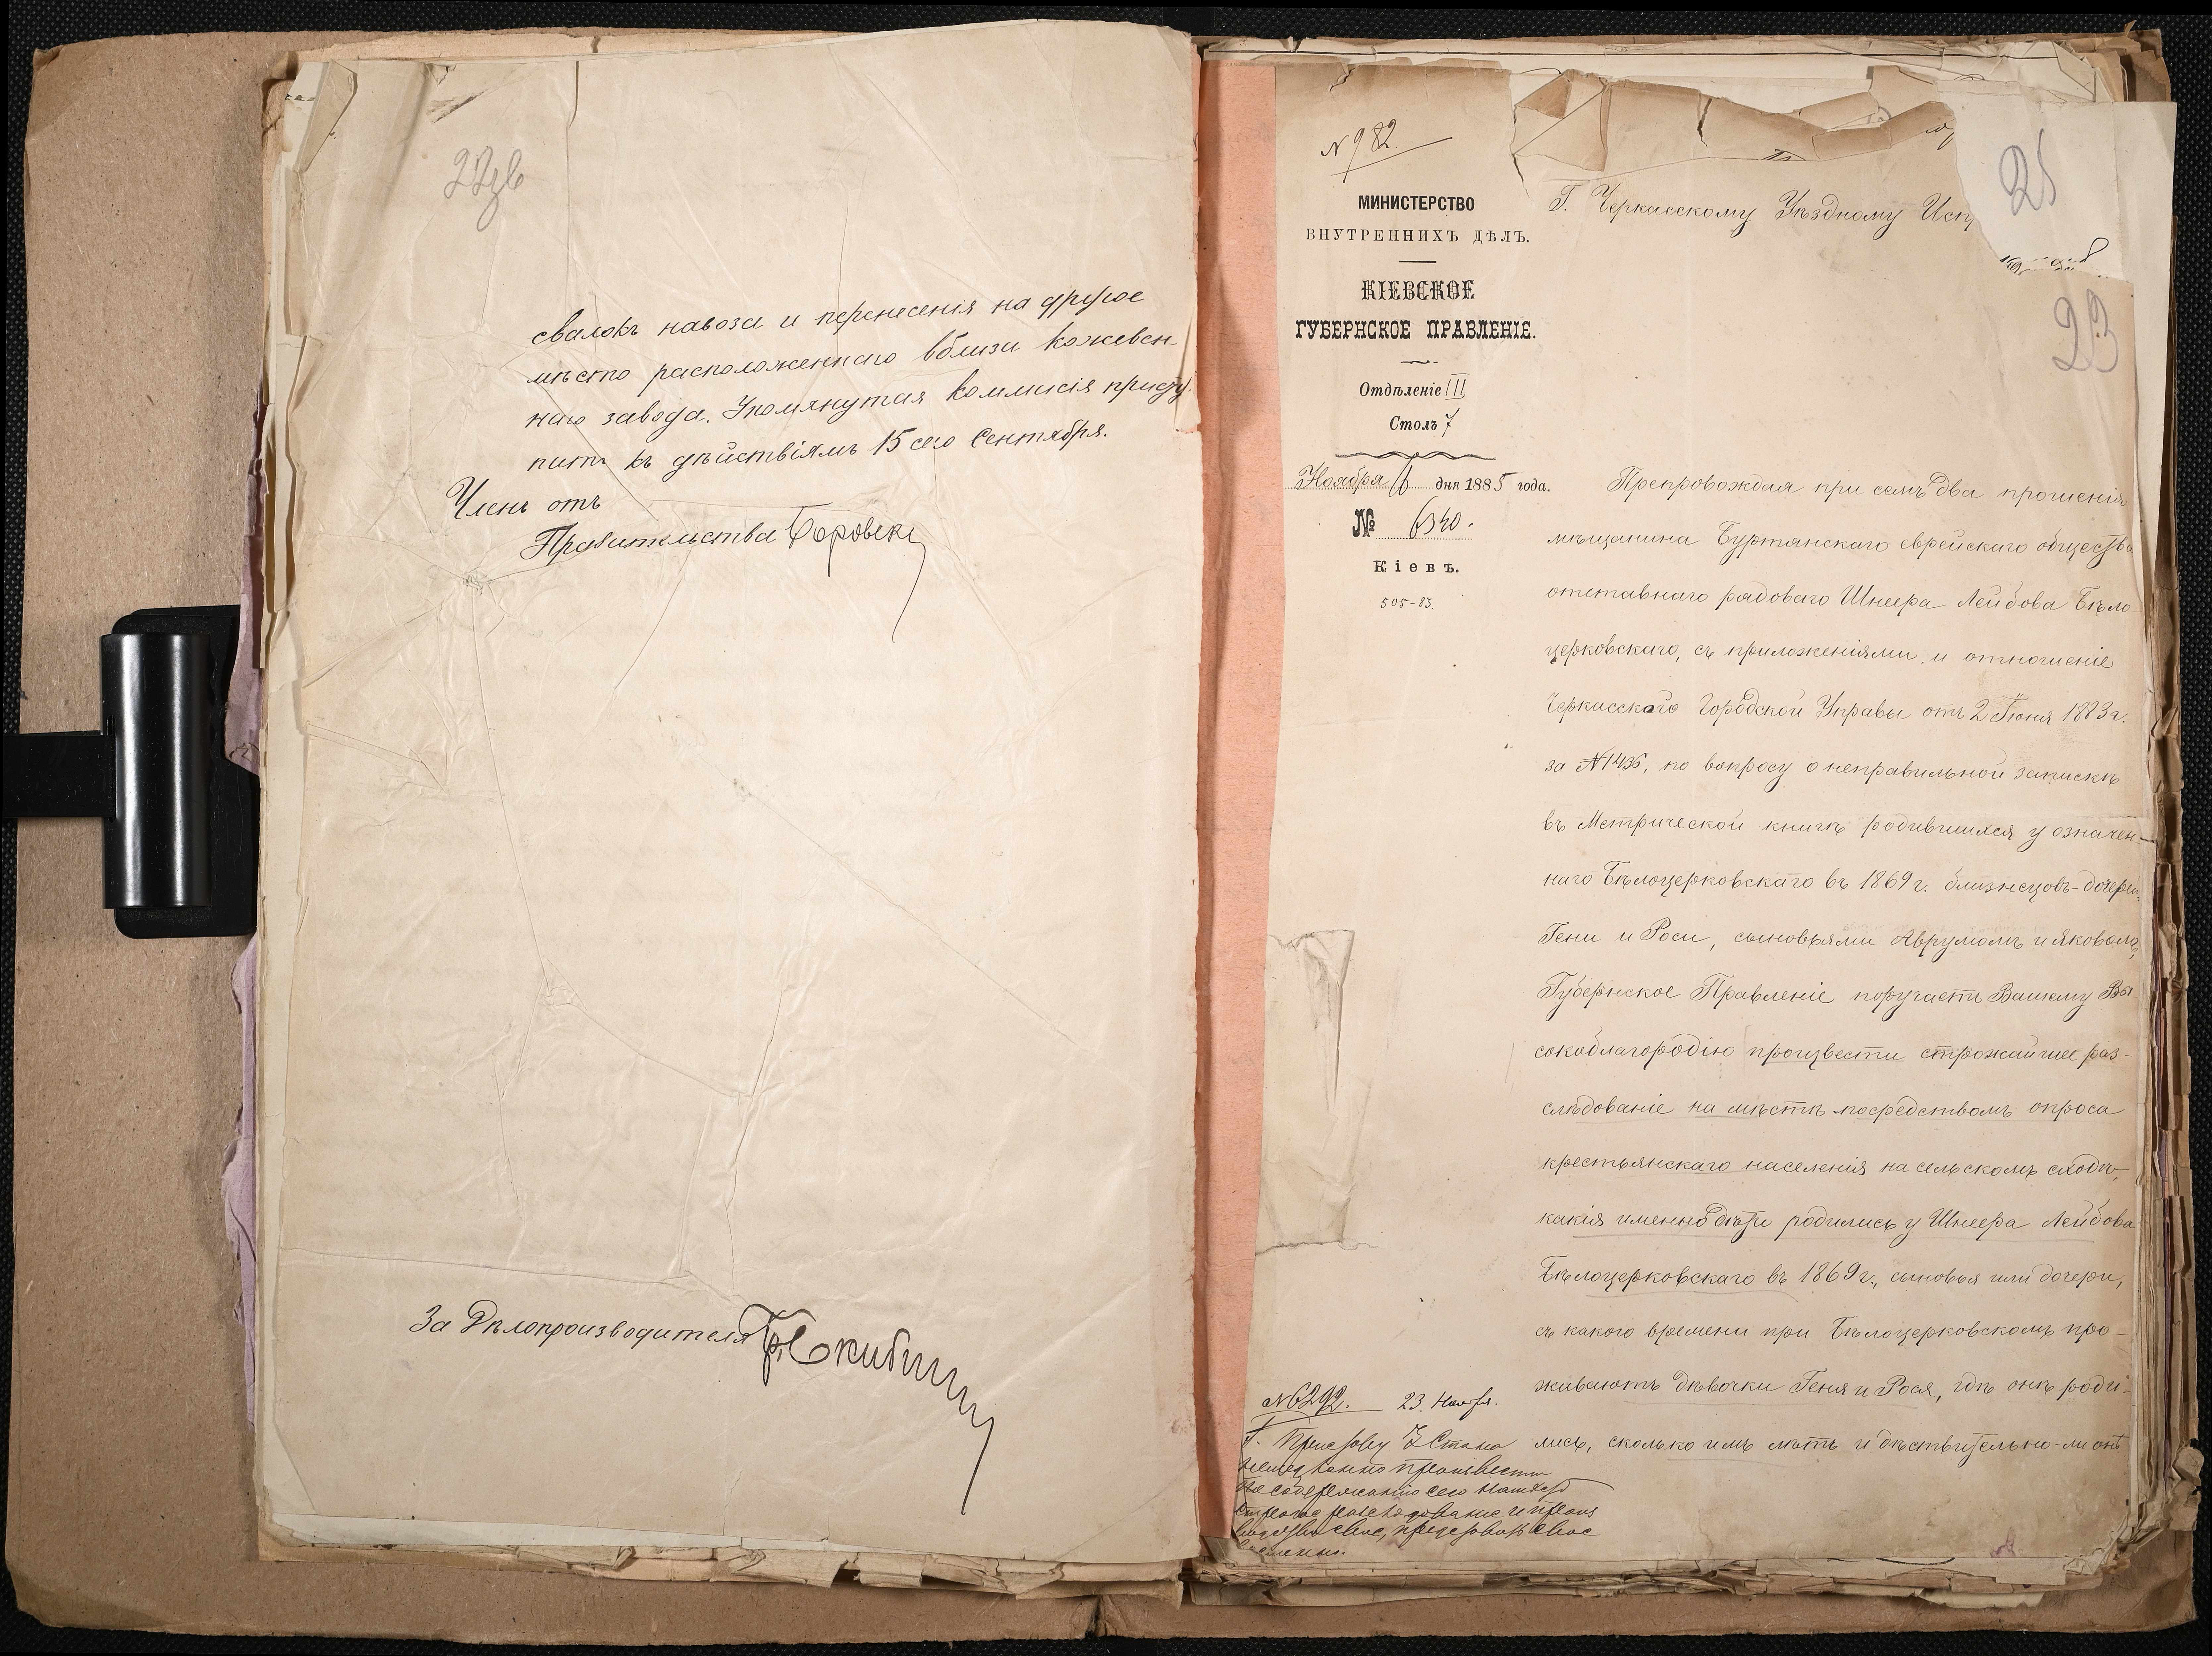 свалокъ навоза и перенесенія на другое
мѣсто расположеннаго вблизи кожевен-
наго завода. Упомянутая коммисія присту
питъ къ дѣйствіямъ 15 сего Сентября.
Членъ отъ
Правительства
За Дѣлопроизводителя
N 982
МИНИСТЕРСТВО
ВНУТРЕННИХЪ ДѢЛЪ.
КІЕВСКОЕ
ГУБЕРНСКОЕ ПРАВЛЕНІЕ.
Отдѣленіе III
Столъ 7
Ноября дня 1885 года.
№ 6340.
Кіевъ.
505-83.
25
23
Г. Черкасскому Уѣздному Исп
Препровождая при семъ два прошенія
мѣщанина Буртянскаго еврейскаго общества
отставнаго рядоваго Шнеера Лейбова Бѣло
церковскаго, съ приложеніями, и отношеніе
Черкасской Городской Управы отъ 2 Іюня 1883 г.
за N 1436, по вопросу о неправильной запискѣ
въ Метрической книгѣ родившихся у означен-
наго Бѣлоцерковскаго въ 1869 г. близнецовъ-дочерей
Гени и Роси, сыновьями Аврумомъ и Яковомъ,
Губернское Правленіе поручаетъ Вашему Вы-
сокоблагородію произвести строжайшее раз-
слѣдованіе на мѣстѣ посредствомъ опроса
крестьянскаго населенія на сельскомъ сходѣ,
какія именно дѣти родились у Шнеера Лейбова
Бѣлоцерковскаго въ 1869 г., сыновья или дочери,
съ какого времени при Бѣлоцерковскомъ про-
живаютъ дѣвочки Геня и Рося, гдѣ онѣ роди-
лись, сколько имъ лѣтъ и дѣствительно-ли онѣ
N 6292. 23. Ноября.
Г. Приставу 2 Стана
произвести
по содержанію сего
строгое разслѣдованіе и